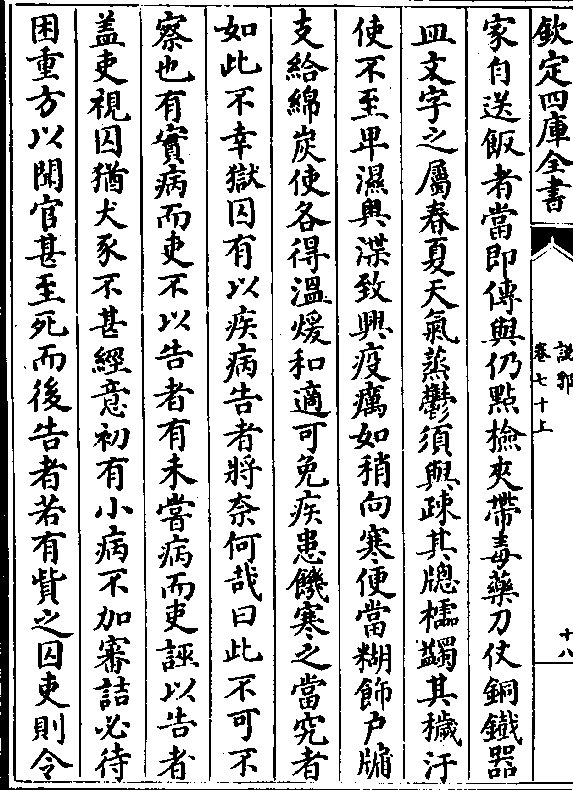 欽定四庫全書
說郛
卷七十上
十八
家自送飯者當即傳與仍點檢夾帶毒藥刀仗銅鐵器
皿文字之屬春夏天氣蒸鬱須與疎其牕櫺蠲其穢汙
使不至卑濕與渫致興疫癘如稍向寒便當糊飾戶牖
支給綿炭使各得溫煖和適可免疾患饑寒之當究者
如此不幸獄囚有以疾病告者將奈何哉曰此不可不
察也有實病而吏不以告者有未嘗病而吏誣以告者
盖吏視囚猶犬豕不甚經意初有小病不加審詰必待
困重方以聞官甚至死而後告者若有貲之囚吏則令